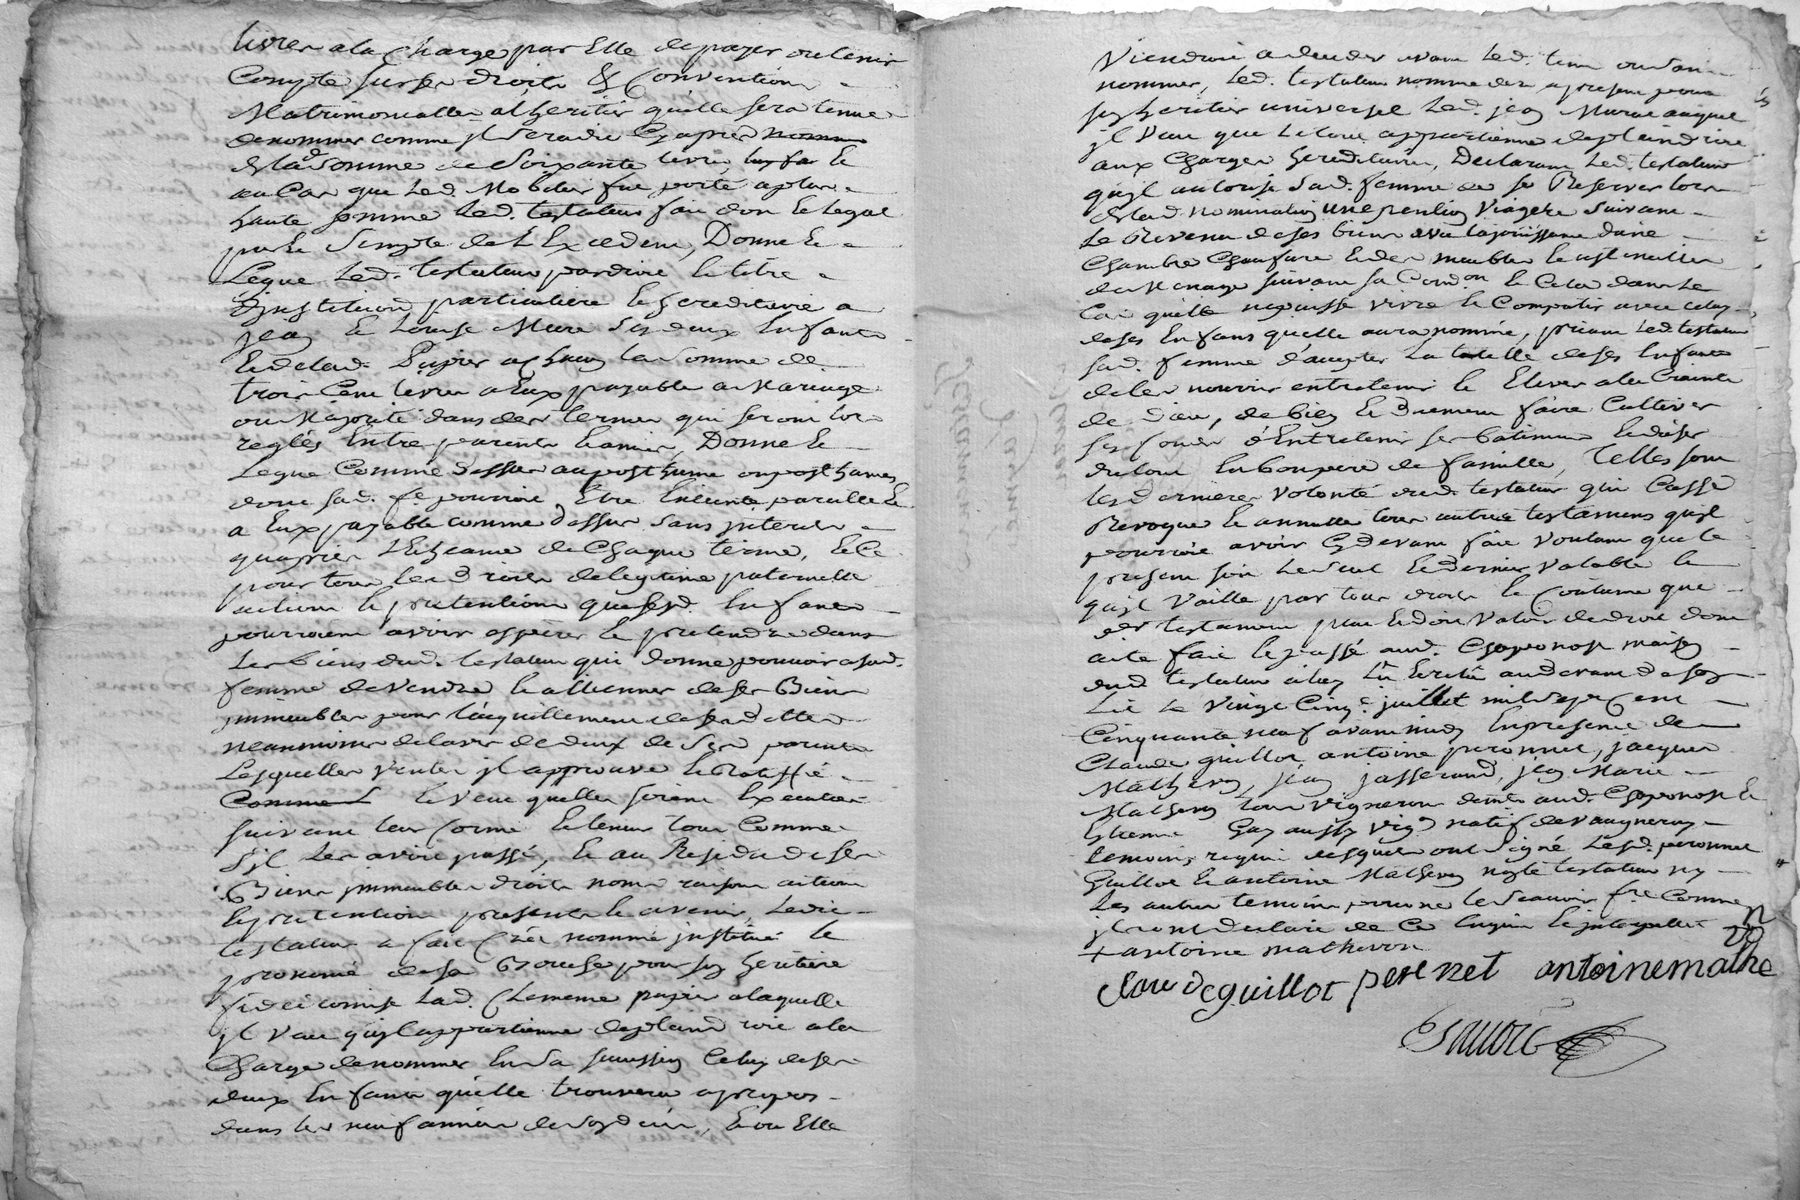 livres a la Charge par Elle de payer ou tenir
Compte sur ses droits & Conventions
Matrimonialles a l heritier qu'elle sera tenue
de nommer comme jl sera dit Cy apres
de lad somme de Soixante livres Et
au Cas que Led. Mobilier fut porté a plus
haute somme Led. testateur fait don Et legat
par Le Simple de L Excedent, Donne Et
Legue Led. testateur par droit Et titre
d'jnstitution particuliere Et hereditaire a
jean Et Louise Mure ses deux Enfants
Et de Lad. Pupier a Chacun la somme de
trois Cent livres a Eux payable a Mariage
ou Majorité dans des termes qui seront lors
reglés Entre parents Et amis, Donne Et
Legue Comme dessus au posthume ou posthumes
dont sad. fe pourroit Etre Enceinte pareille
a Eux payable comme dessus sans jnterets
qu'apres L Echeance de Chaque terme, Et Ce
pour tous les Droits de legitime paternelle
actions Et pretentions que sesd. Enfants
pourroient avoir esperer Et pretendre dans
Les biens dud. testateur qui donne pouvoir a sad.
femme de vendre Et alliener de ses Biens
jmmeubles pour l'acquittement de ses dettes
neanmoins de l'avis de deux de Ses parents
Lesquelles ventes jl approuve Et Ratiffié
Comme Et Veut quelles soient Executées
suivant leur forme Et teneur tout Comme
s'jl Les avoit passé, Et au Residu de ses
Biens jmmeubles droits noms raisons actions
Et pretentions presents Et avenir, Ledit
testateur a fait Créé nommé jnstitué Et
prononcé de sa Bouche pour son heritiere
fideicomise Lad. Clemence pupier a laquelle
jl Veut qu'jl appartienne de plein droit a la
Charge de nommer En sa succession Celuy de ses
deux Enfants qu'elle trouvera apropos
dans les neuf années de son deces, Et ou Elle
Viendroit a deceder avant Led. tems ou sans
nommer, Led. testateur nomme des a present pour
son heritier universel Led. jean Mure auquel
jl Veut que Le tout appartienne de plein droit
aux Charges hereditaires, Declarant Led. testateur
qu'jl autorise Sad. femme de se Reserver lors
de lad nomination une pention Viagere suivant
Le Revenu de ses biens avec la jouissance d'une
Chambre Chaufure Et des meubles Et ustancilles
de Menage suivant sa Condon Et Cela dans Le
Cas qu'elle ne puisse vivre Et Compatir avec celuy
de ses Enfans quelle aura nommé, priant Led. testateur
sad. femme d'accepter La tutelle de ses Enfants
de les nourrir entretenir Et Elever a la Crainte
de Dieu, de bien Et Duement faire Cultiver
ses fonds d'Entretenir ses batimens Et d'user
du tout En bon pere de famille, Telles sont
les dernieres volonté dud. testateur qui Casse
Revoque Et annulle tous autres testamens qu'jl
pourroit avoir Cy devant fait voulant que le
present soit Le seul Et Dernier Valable Et
qu'jl Vaille par tous droits Et Coutume que
testament peut Et doit Valoir de droit dont
acte fait Et passé aud. Chaponost maison
dud testateur a luy Lû Et relû au devant de son
Lit Le Vingt Cinqe juillet mil sept Cent
Cinquante neuf avant midy En presence de
Claude guillot antoine peronnet, jacques
Mathevon, jean jasserand, jean Marie
Mathevon tous vignerons demts aud. Chaponost Et
Estienne Guy aussy vign natif de Vaugneray
temoins requis desquels ont signé Lesd. peronnet
Guillot Et antoine Mathevon non le testateur ny
Les autres temoins pour ne le sçavoir fre Comme
jls ont declaré de Ce Enquis Et jnterpellés
+ antoine mathevon
Claude guillot peronnet antoine mathe